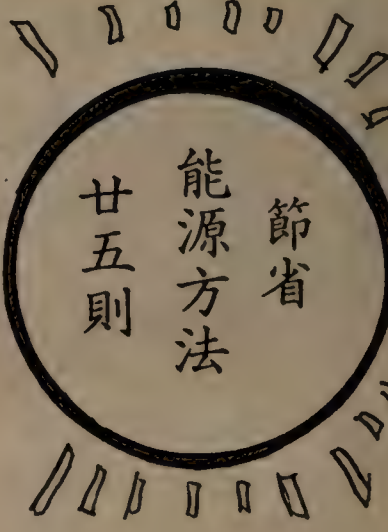 節省
能源方法
廿五則